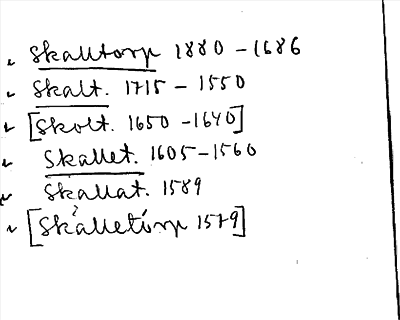 Skalltorp 1880 - 1686
Skalt. 1715 - 1550
[Skolt. 1650 - 1640]
Skallet. 1605 - 1560
Skallat. 1589
[Skålletörp 1579]